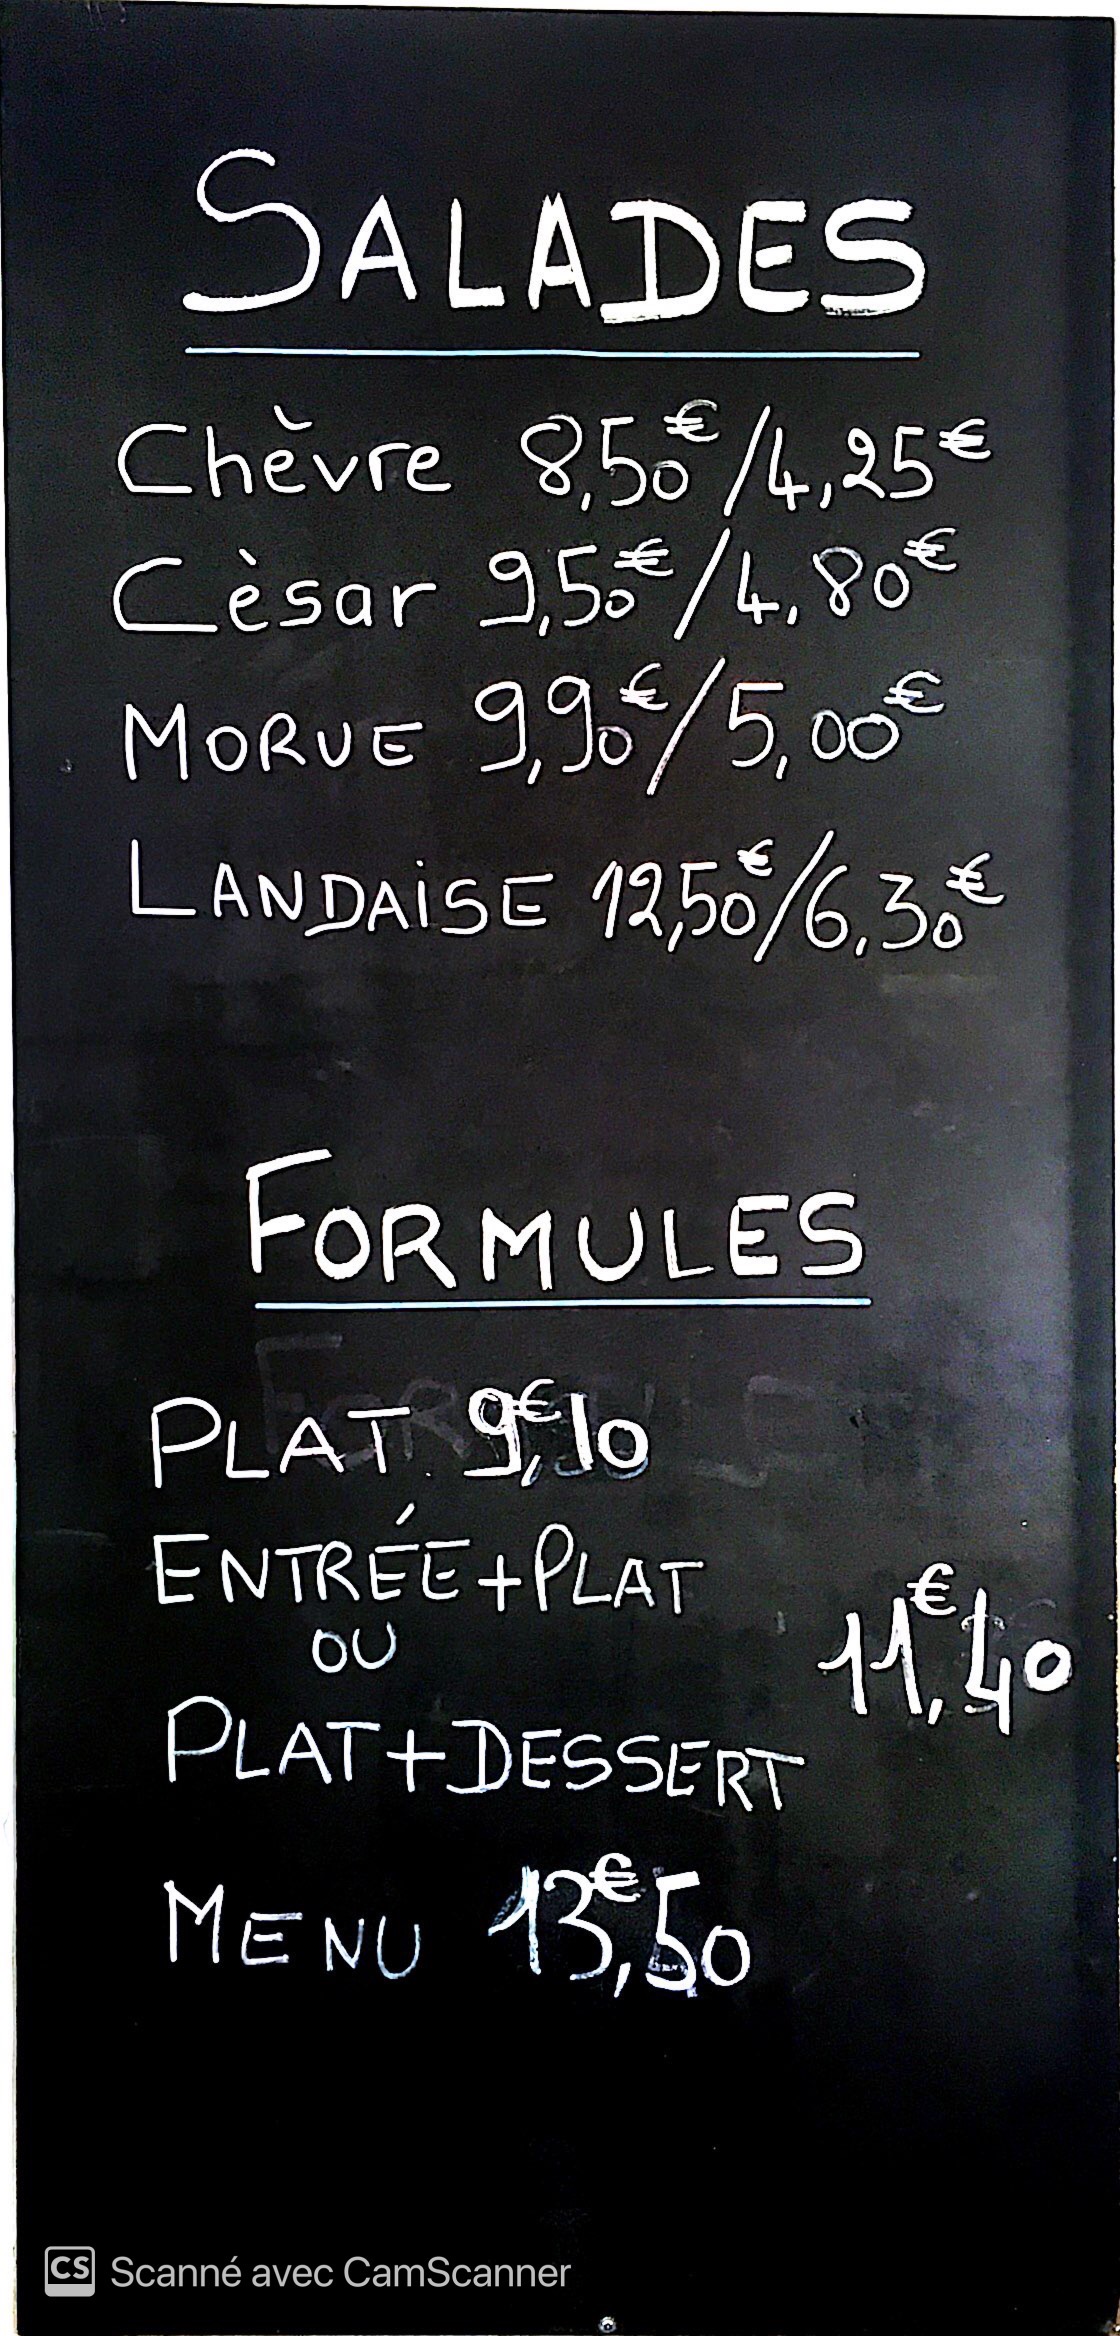 SALADES
Chèvre 8,50€/4,25€
Cèsar 9,50€/4,80€
MORUE 9,90€/5,00€
LANDAiSE 12,50€/6,30€
FORMULES
PLAT 9€,10
ENTRÉE+PLAT
OU
11€,40
PLAT+DESSERT
MENU 13€,50
CS Scanné avec CamScanner